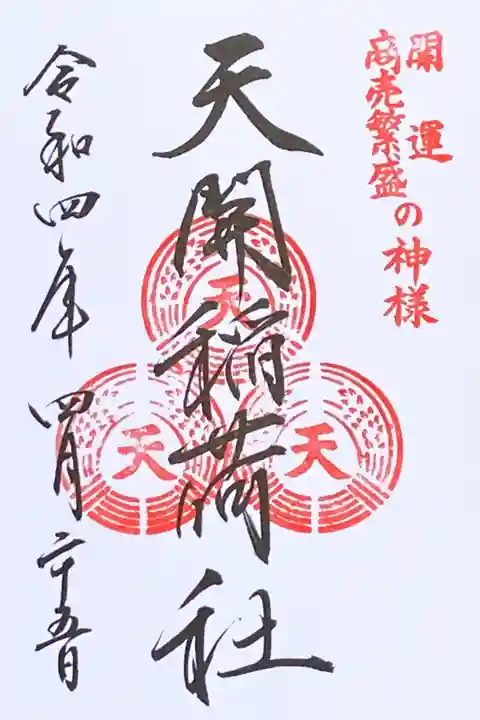 開運
商売繁盛
の神様
天開稲荷社
天
天
天
令和四年 四月二十五日